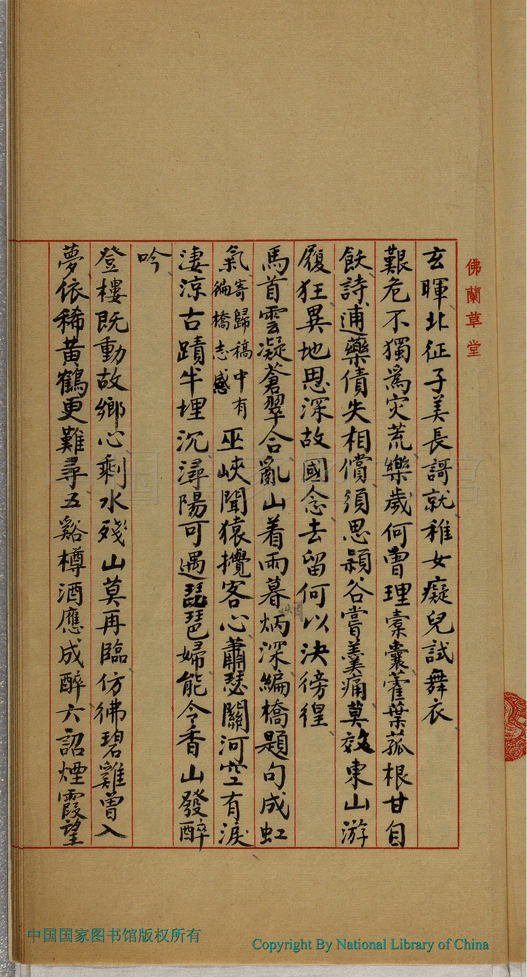 佛蘭草堂
玄暉北征子美長謌就稚女癡兒試舞衣
艱危不獨爲灾荒樂歲何曾理橐囊藿葉菰根甘自
飫詩逋藥債失相償須思潁谷嘗羹痛莫效東山游
履狂異地恩深故國念去留何以決徬徨
馬首雲凝蒼翠合亂山着雨暮炳深編橋題句成虹
氣寄歸稿中有
徧橋志感
巫峽聞猿攪客心蕭瑟關河空有淚
淒涼古蹟半埋沉潯陽可遇琵琶婦能令香山發醉
吟
登樓既動故鄉心剩水殘山莫再臨仿彿碧雞曾入
夢依稀黃鶴更難尋五谿樽酒應成醉六詔煙霞望
中国国家图书馆版权所有
Copyright By National Library of China